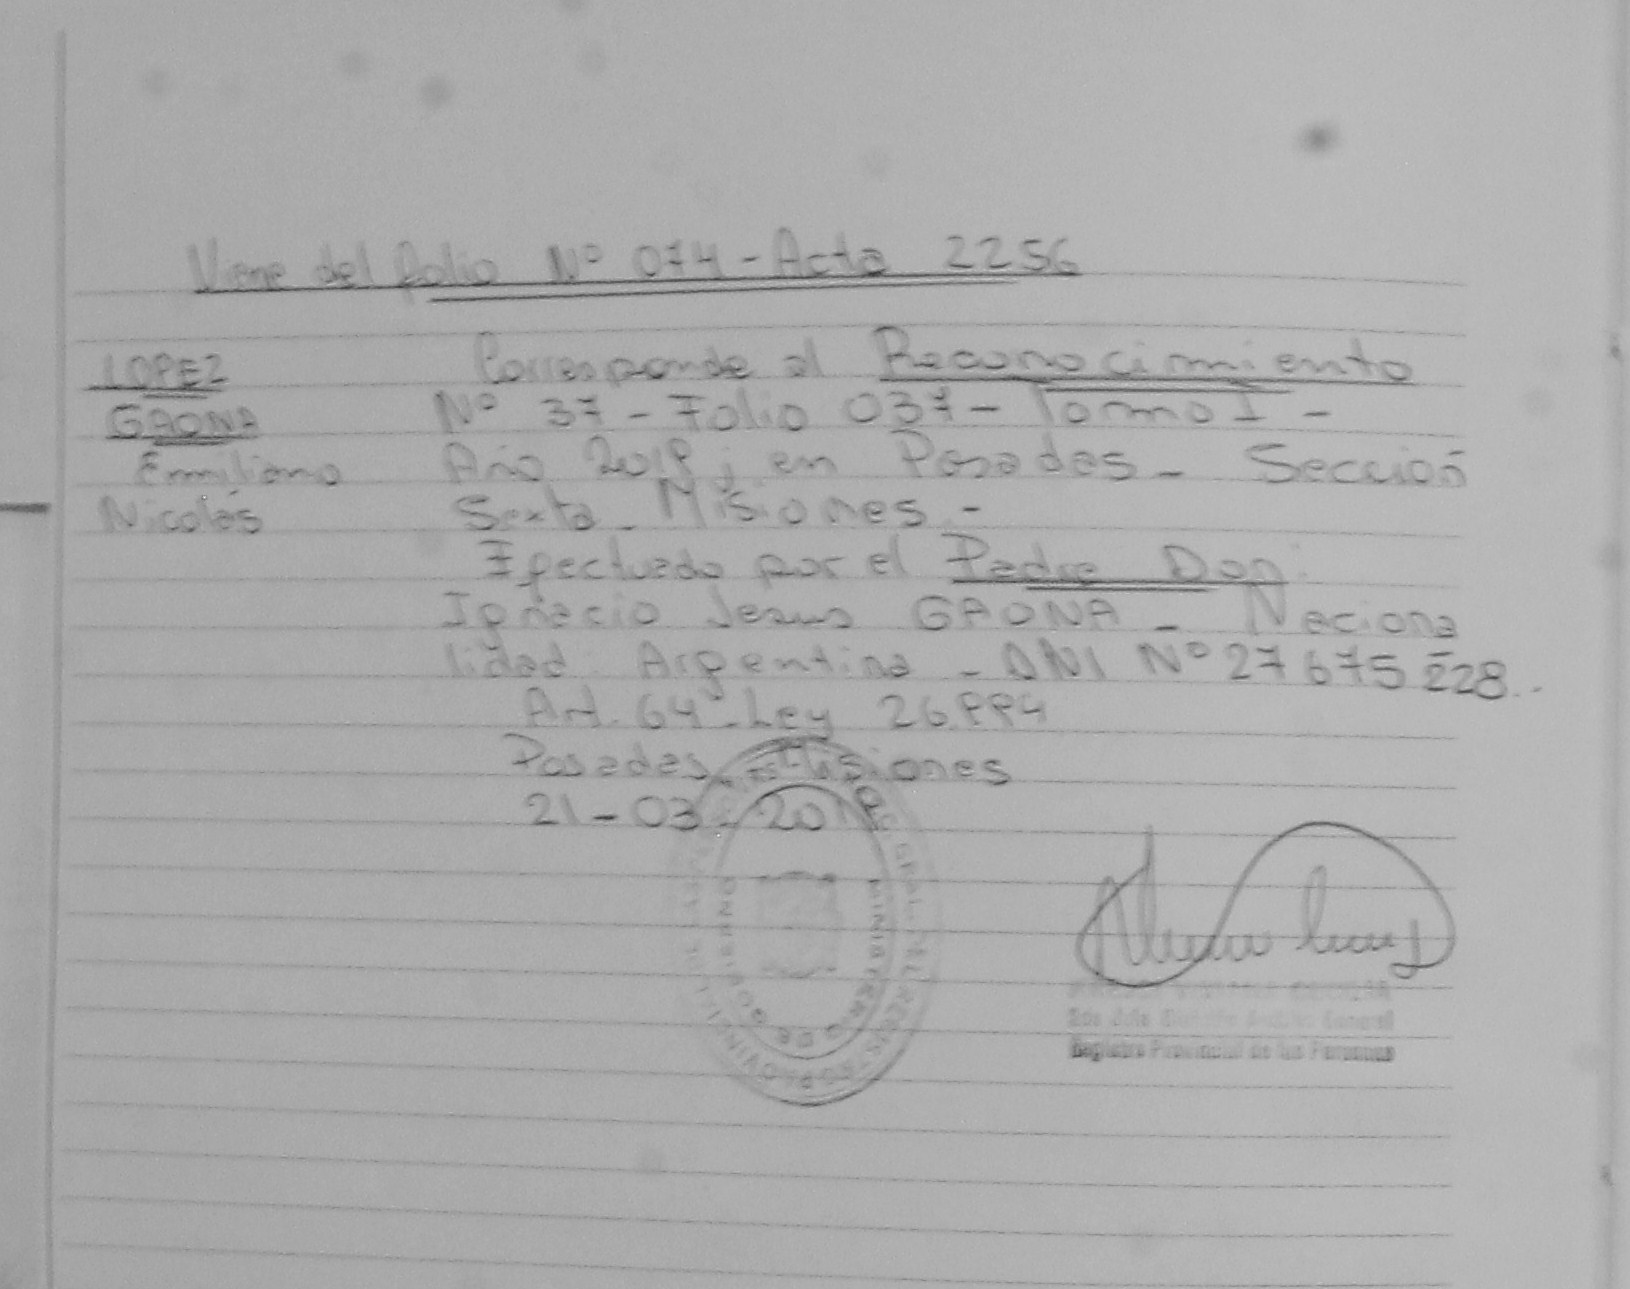 Viene del folio Nº 074 - Acta 2256
LOPEZ
GAONA
Emiliano
Nicolás
Corresponde al Reconocimiento
Nº 37 - Folio 037 - Tomo I -
Año 2019; en Posadas - Sección
Sexta - Misiones -
Efectuado por el Padre Don:
Ignacio Jesus GAONA - Naciona
lidad Argentina - DNI Nº 27 675 228..
Art. 64 - Ley 26.994
Posadas, Misiones
21-03-2019
General
Registro Provincial de las Personas